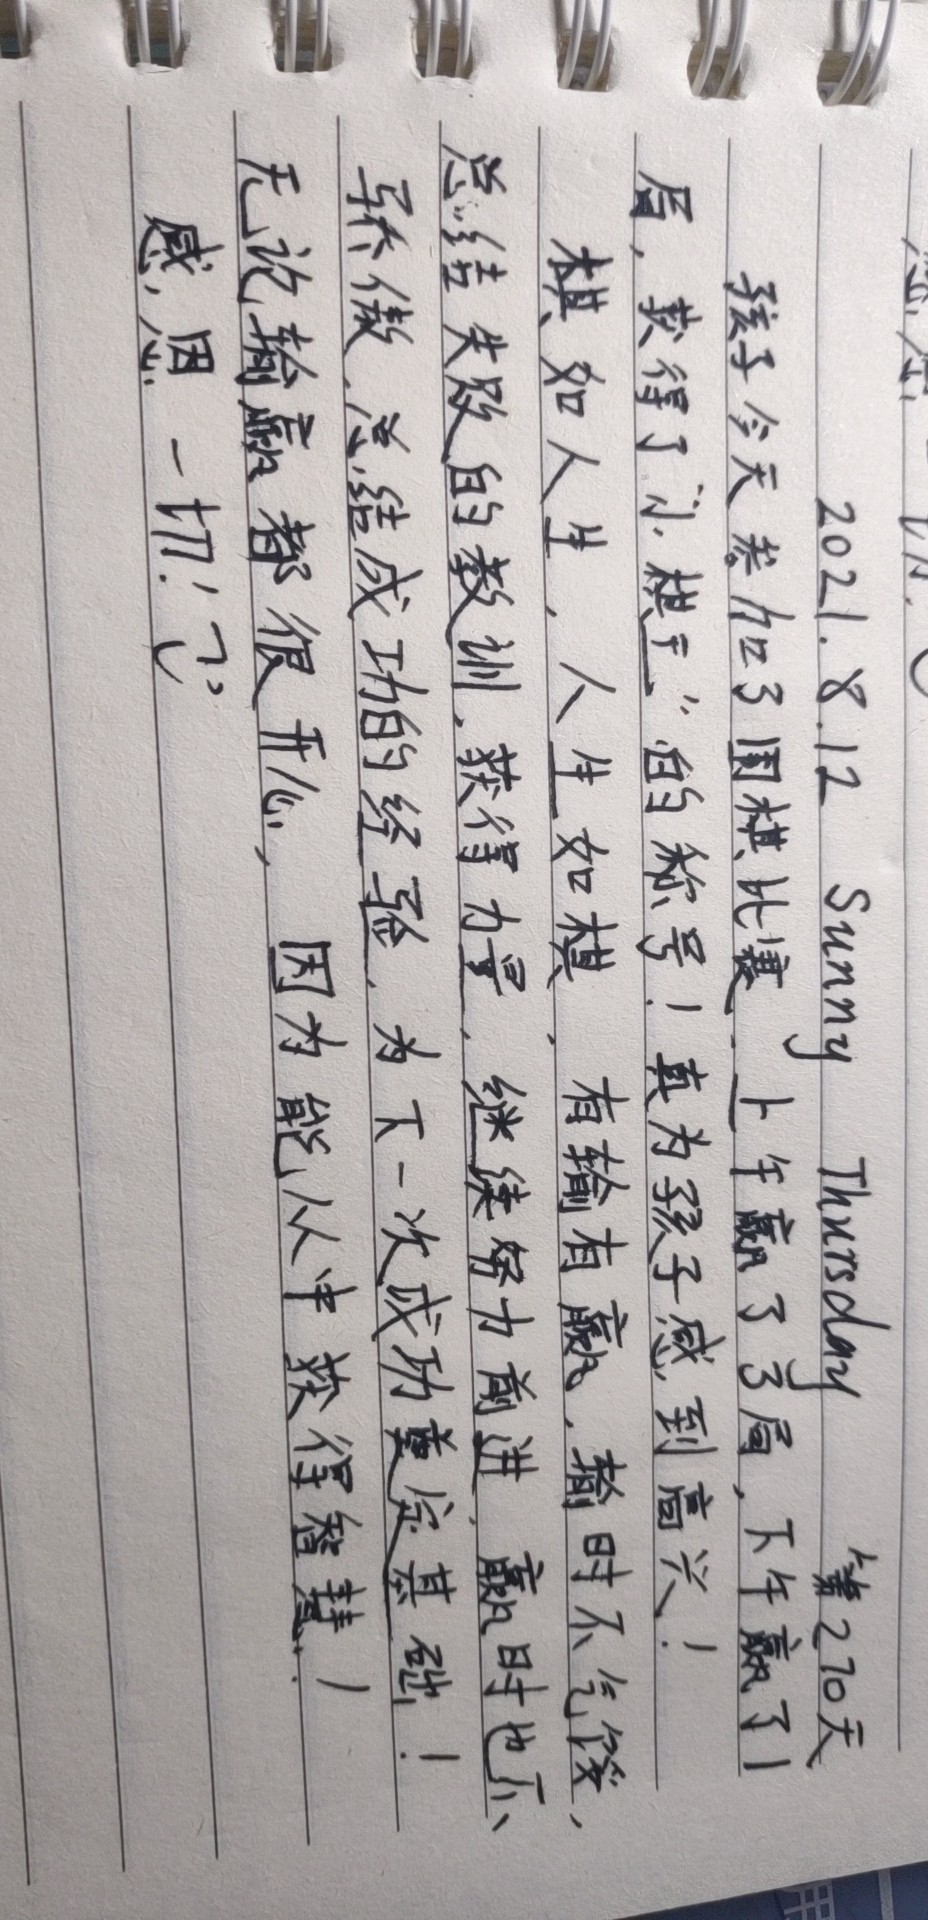 2021.8.12 Sunny Thursday 第270天
孩子今天参加了围棋比赛，上午赢了3局，下午赢了1
局，获得了“小棋王”的称号！真为孩子感到高兴！
棋如人生，人生如棋，有输有赢，输时不气馁，
总结失败的教训，获得力量，继续努力前进，赢时也不
骄傲，总结成功的经验，为下一次成功奠定基础！
无论输赢都很开心，因为能从中获得智慧！
感恩一切！